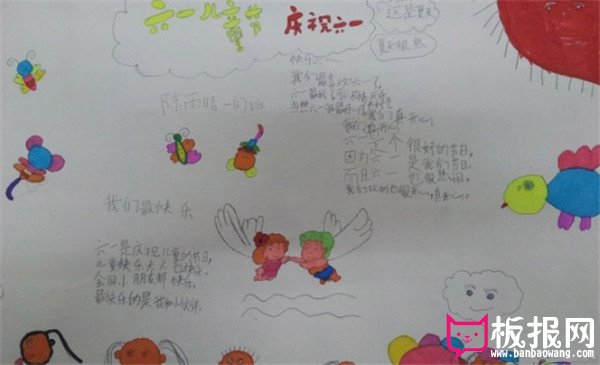 六一儿童节
庆祝六一
这是夏天
夏天很热
快乐六一
我们最喜欢六一了，
我们真开心！
我们真开心！
六一是一个很好的节日，
因为六一是我们节日，
而且六一也很热闹。
陈雨晴一(1)班
我们最快乐
六一是庆祝儿童的节日，
儿童快乐大人也快乐。
全国小朋友都快乐，
最快乐的是我和小伙伴。
板报网
www.banbaowang.com